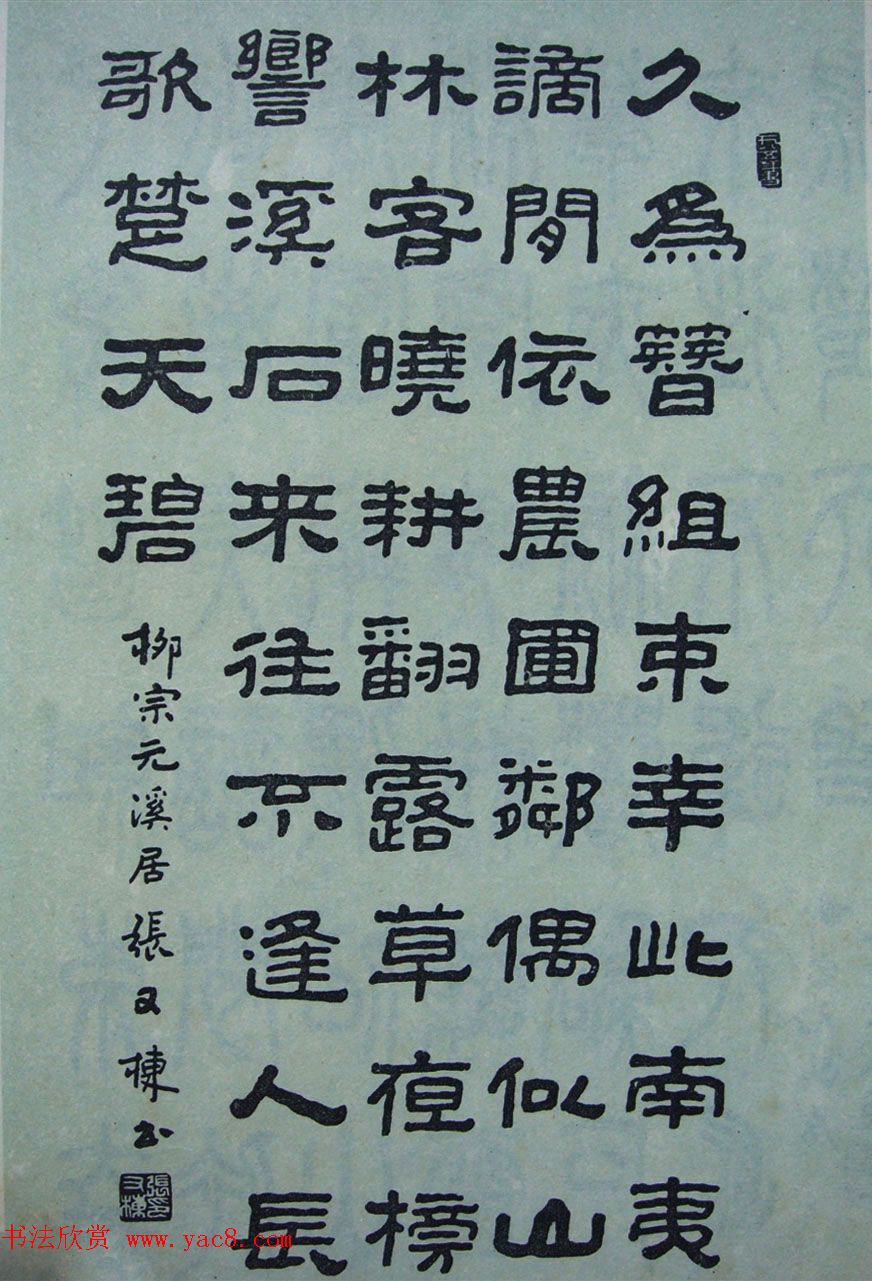 久為簪組束幸此南夷
謫閒依農圃鄰偶似山
林客曉耕翻露草夜榜
響溪石来往不逢人長
歌楚天碧
柳宗元溪居張又棟书
張又棟印
书法欣赏 www.yac8.com